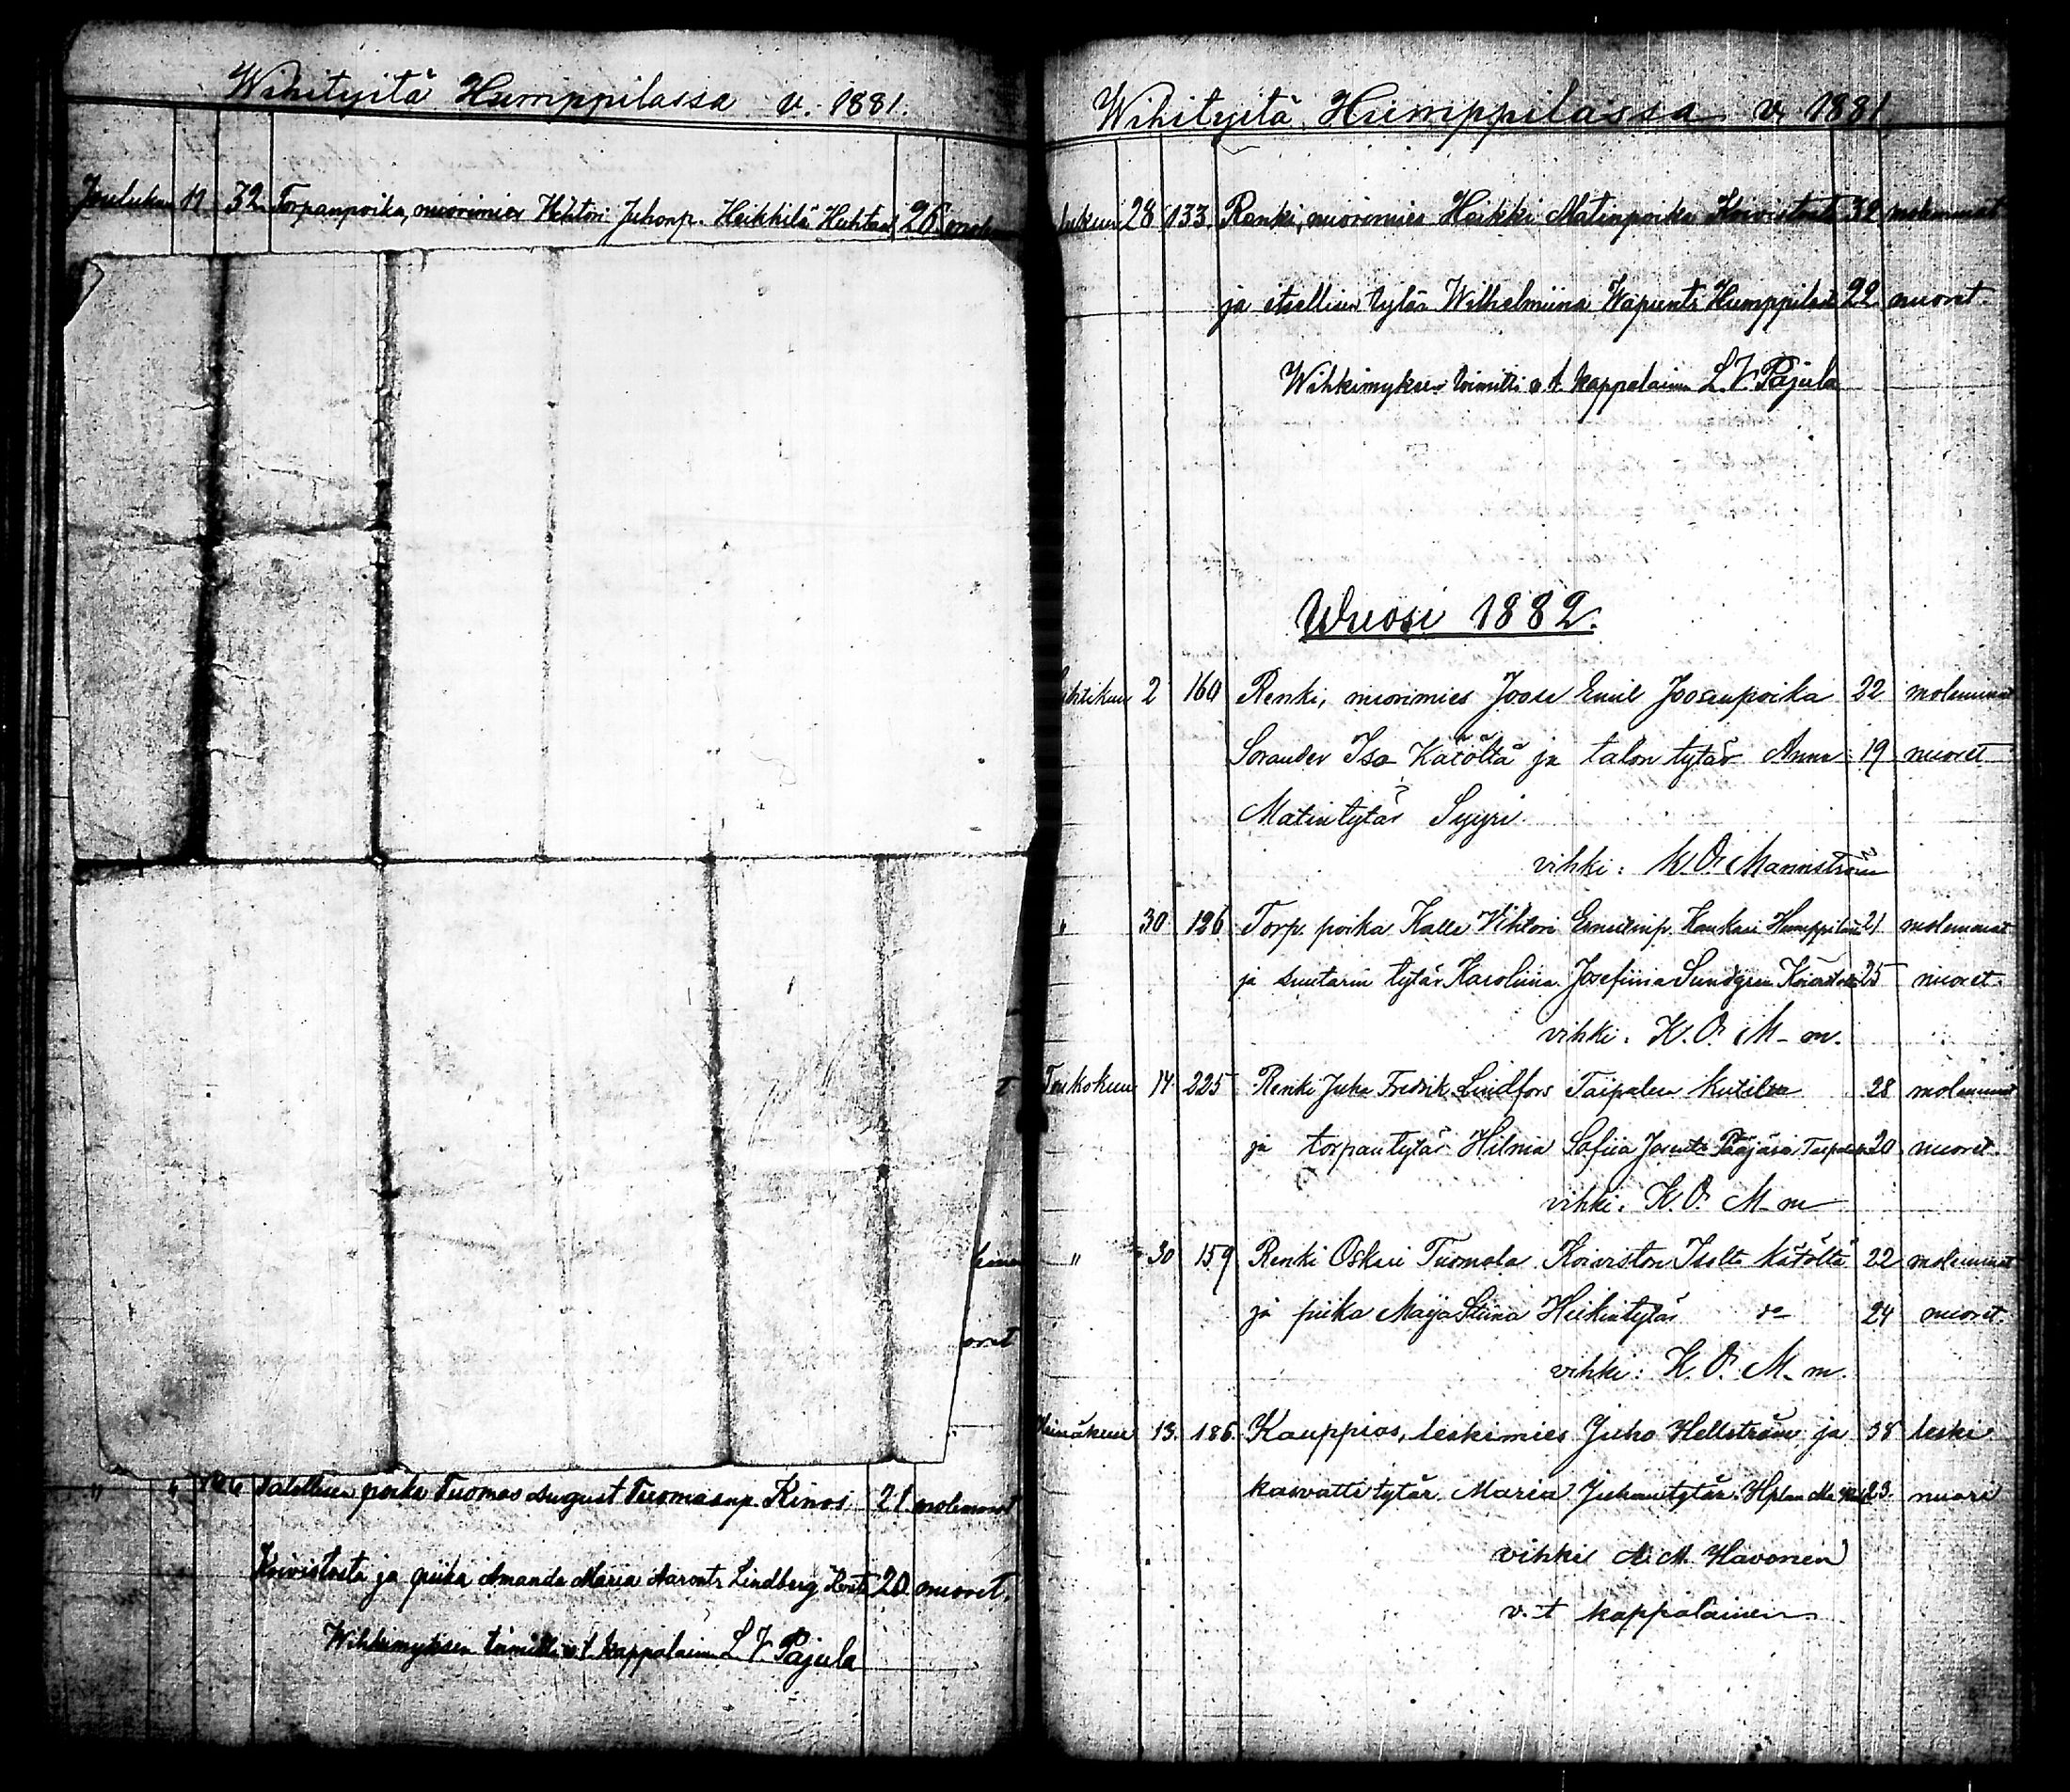 Wihityitä Humppilassa v. 1881.
Jouluk. 11 32. Torpanpoika, nuorimies Vihtori Juhonp. Heikkilä 26
" " Itsellisen poika Tuomas August Tuomaanp. Kinos 21 molemmat
Koivistosta ja piika Amanda Maria Aaronts Lindberg 20 nuoret.
Wihkimyksen toimitti v. t. kappalainen L. V. Pajula
Wihityitä Humppilassa v. 1881.
28 133. Renki, nuorimies Heikki Matinpoika Koivistosta 32 molemmat
ja itsellisen tytär Wilhelmiina Humppilasta 22 nuoret.
Wihkimyksen toimitti v. t. kappalainen L. V. Pajula
Wuosi 1882.
Huhtikuu 2 160 Renki, nuorimies Joose Emil Joosenpoika 22 molemmat
Sorander Iso Kätöltä ja talon tytär Anna 19 nuoret
Matintytär Syyri
vihki: K. O. Mannström
" 30 126 Torp. poika Kalle Vihtori 21 molemmat
ja suutarin tytär Karoliina Josefiina Sundgren 25 nuoret.
vihki: K. O. M-m.
Toukokuu 14 225 Renki Juha Fredrik Lindfors Taipaleen 28 molemmat
ja torpantytär Hilma Sofiia 20 nuoret.
vihki: K. O. M-m
" 30 159 Renki Oskari Tuomola Koiviston Isolta Kätöltä 22 molemmat
ja piika Maija Stiina Heikintytär do 24 nuoret.
vihki: K. O. M-m.
Heinäkuu 13. 186. Kauppias, leskimies Juho Hellström ja 38 leski
kasvatti tytär Maria Juhontytär 23. nuori
vihki A. M. Havonen
v. t kappalainen